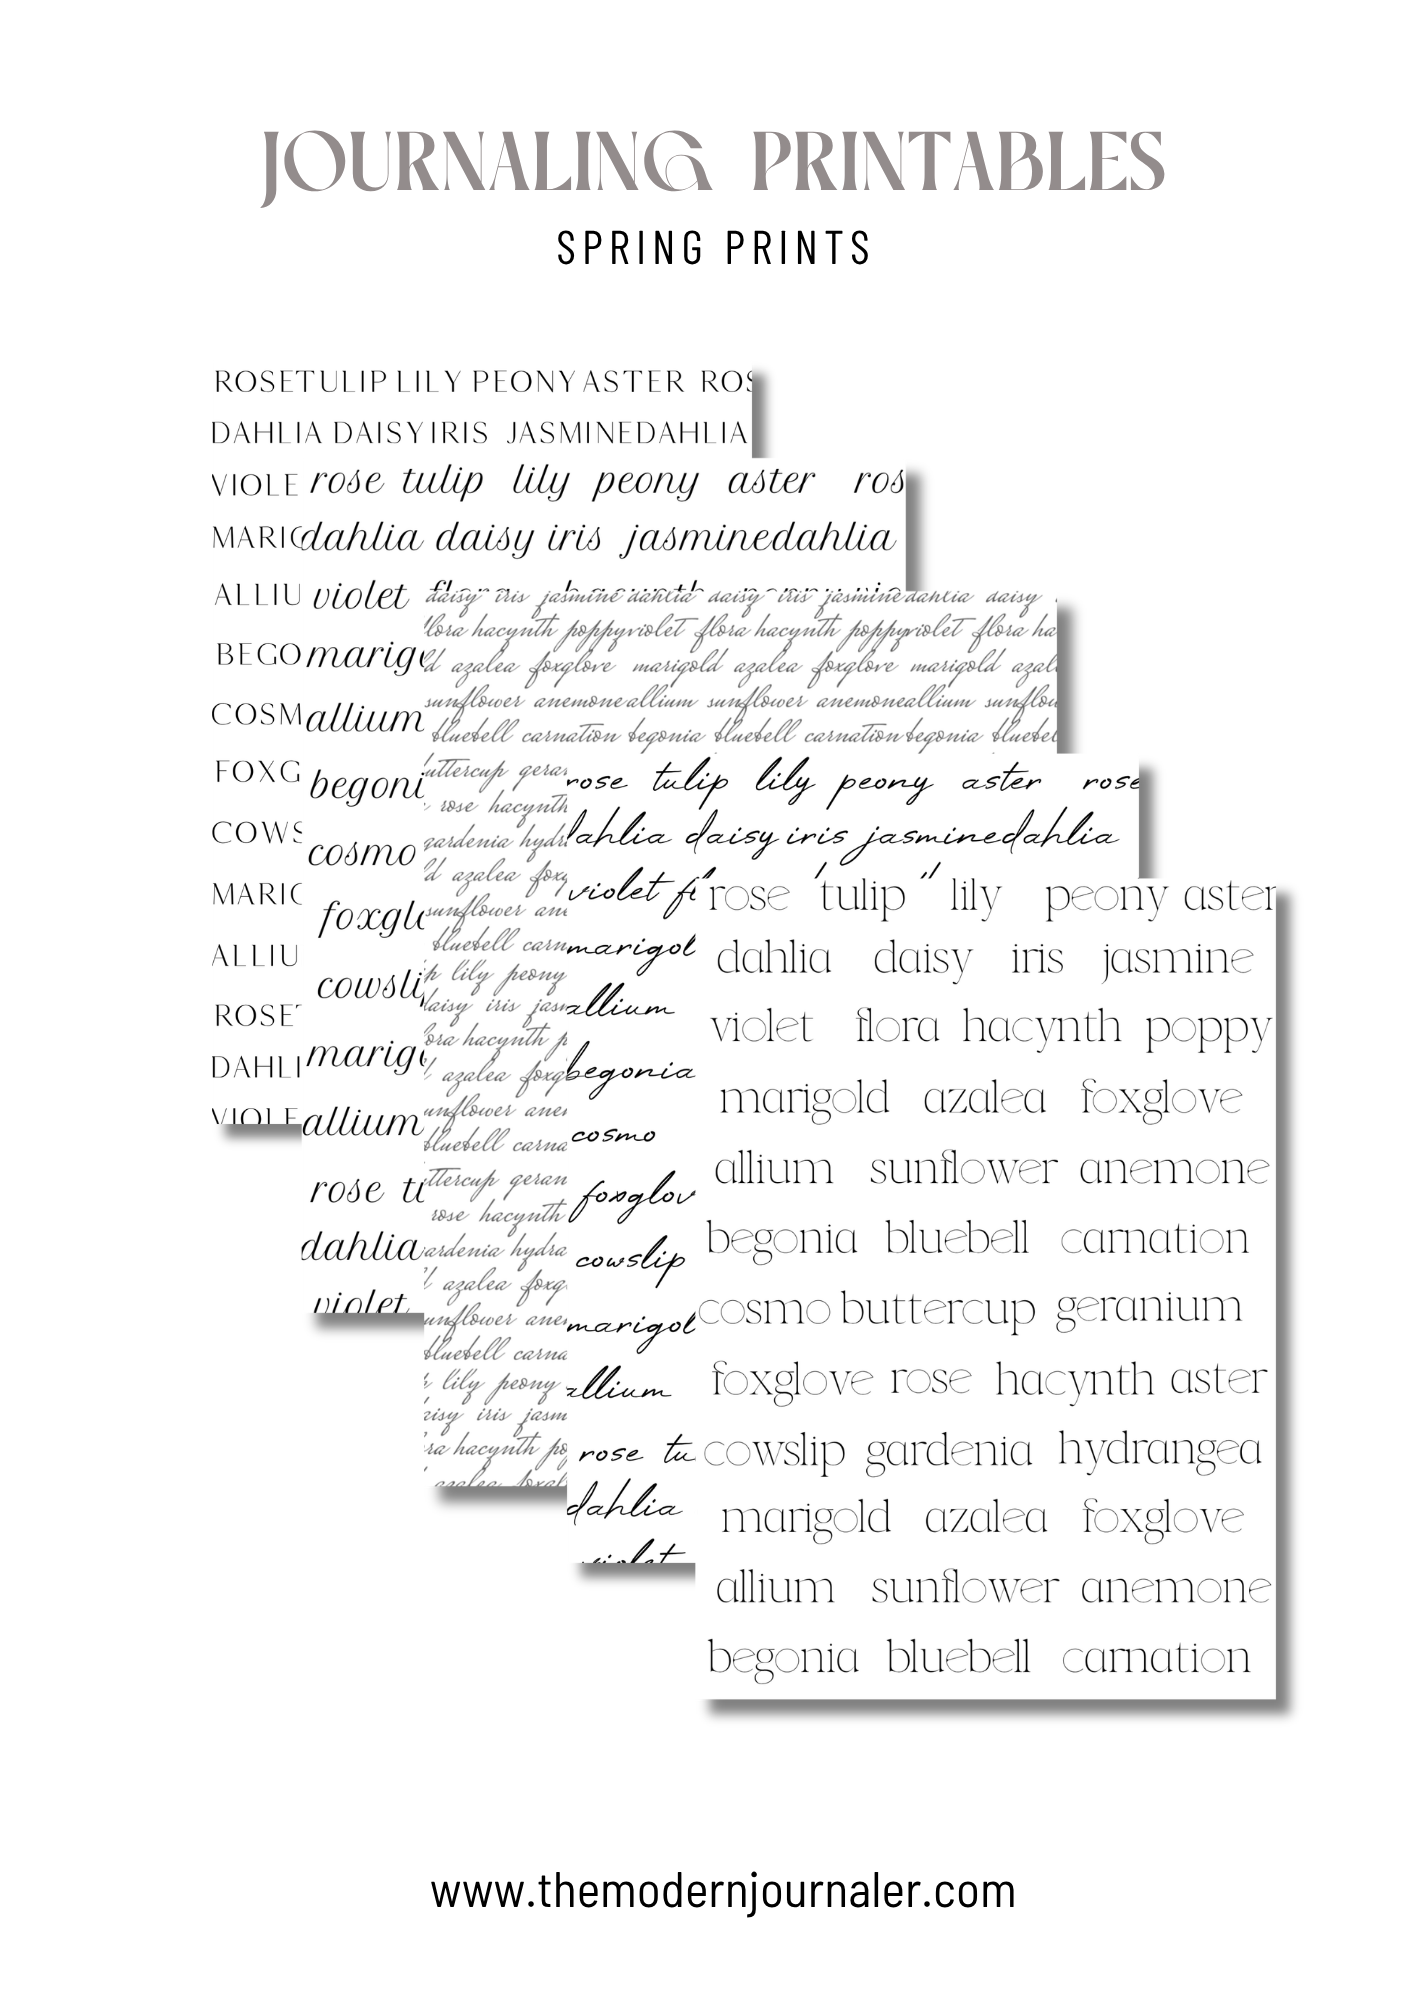 JOURNALING PRINTABLES
SPRING PRINTS
ROSE TULIP LILY PEONY ASTER ROS
DAHLIA DAISY IRIS JASMINE DAHLIA
VIOLE
MARIG
ALLIU
BEGO
COSM
FOXG
COWS
MARIG
ALLIU
ROSE
DAHLI
VIOLE
rose tulip lily peony aster ros
dahlia daisy iris jasmine dahlia
violet
marig
allium
begoni
cosmo
foxgl
cowsli
marig
allium
rose t
dahlia
violet
daisy iris jasmine dahlia daisy iris jasmine dahlia daisy
lora hacynth poppy violet flora hacynth poppy violet flora ha
d azalea foxglove marigold azalea foxglove marigold azal
sunflower anemone allium sunflower anemone allium sunflow
bluebell carnation begonia bluebell carnation begonia bluebel
uttercup geran
rose hacynth
gardenia hydr
d azalea foxg
sunflower ane
bluebell carn
p lily peony
daisy iris jasm
ora hacynth p
azalea foxg
unflower ane
bluebell carna
ttercup geran
rose hacynth
ardenia hydra
azalea foxg
unflower ane
bluebell carna
lily peony
aisy iris jasm
ra hacynth po
azalea foxgl
rose tulip lily peony aster rose
dahlia daisy iris jasmine dahlia
violet fl
marigol
allium
begonia
cosmo
foxglov
cowslip
marigol
allium
rose tu
dahlia
violet
rose tulip lily peony aster
dahlia daisy iris jasmine
violet flora hacynth poppy
marigold azalea foxglove
allium sunflower anemone
begonia bluebell carnation
cosmo buttercup geranium
foxglove rose hacynth aster
cowslip gardenia hydrangea
marigold azalea foxglove
allium sunflower anemone
begonia bluebell carnation
www.themodernjournaler.com